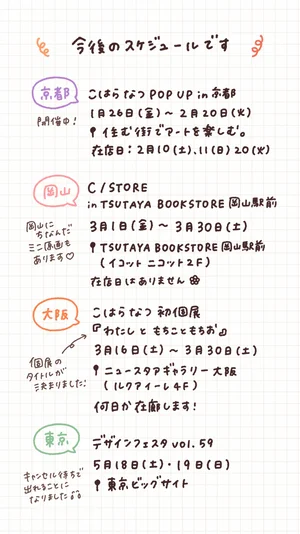 今後のスケジュールです
京都
開催中!
こはらなつ POP UP in 京都
1月26日(金)〜 2月20日(火)
住む街でアートを楽しむ。
在店日:2月10(土)、11(日)20(火)
岡山
岡山に
ちなんだ
ミニ原画も
あります♡
C/STORE
in TSUTAYA BOOKSTORE 岡山駅前
3月1日(金)〜 3月30日(土)
TSUTAYA BOOKSTORE 岡山駅前
(イコット ニコット2F)
在店日はありません
大阪
個展の
タイトルが
決まりました!
こはらなつ 初個展
『わたしと もちこともちお』
3月16日(土)〜 3月30日(土)
ニュースタアギャラリー大阪
(ルクアイーレ4F)
何日か在廊します!
東京
キャンセル待ちで
出れることに
なりました
デザインフェスタ vol.59
5月18日(土)・19日(日)
東京ビッグサイト